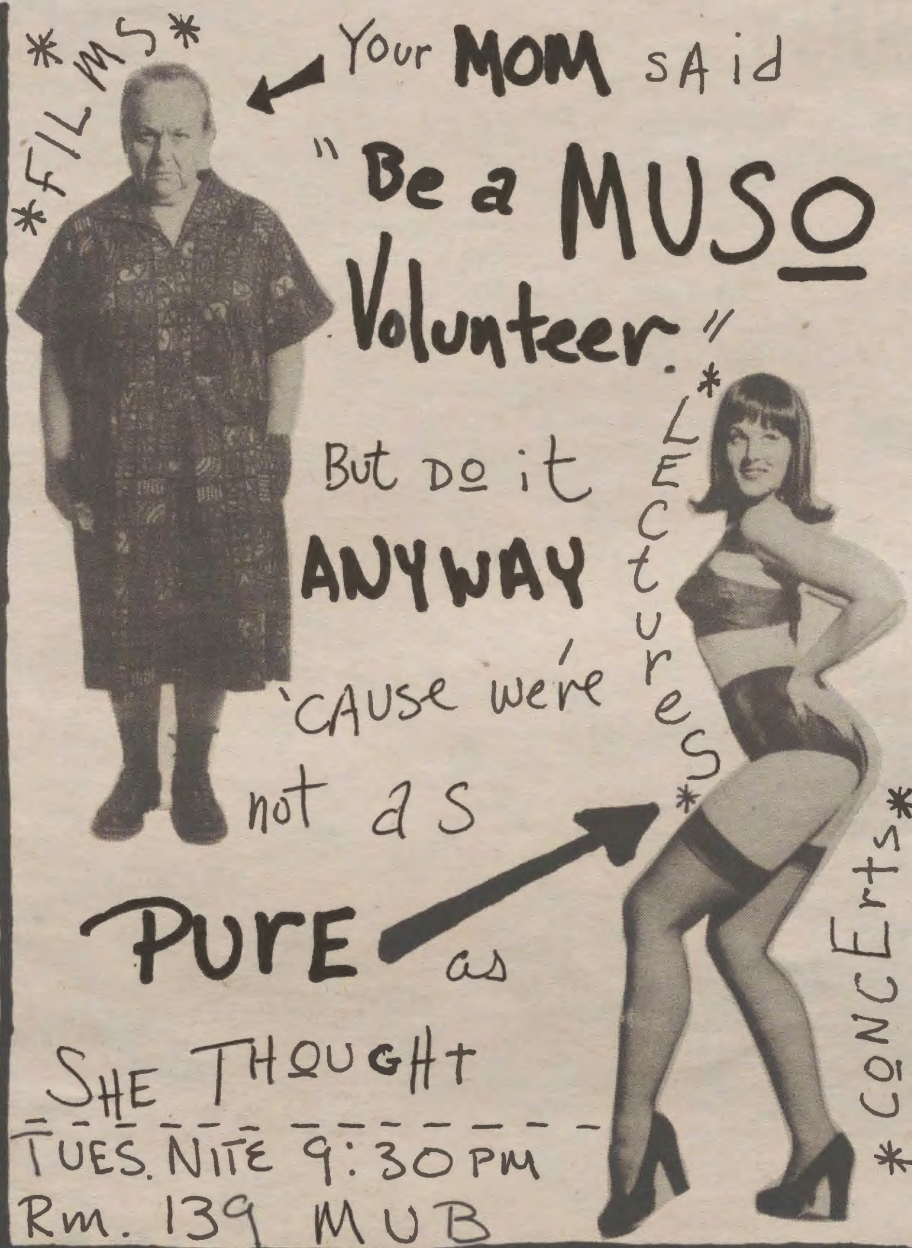 *FILMS*
Your MOM sAid
"Be a MUSO
Volunteer."
But DO it
ANYWAY
'CAUSE we're
not as
PUrE as
SHE THOUGHT
*LECtureS*
*CONCErts*
TUES. NITE 9:30 PM
Rm. 139 MUB